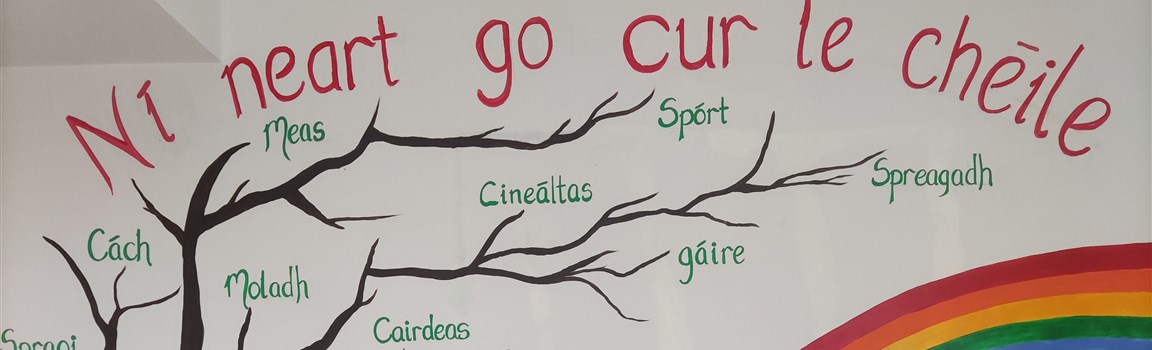 Ní neart go cur le chéile
Meas
Spórt
Cineáltas
Spreagadh
Cách
gáire
Moladh
Cairdeas